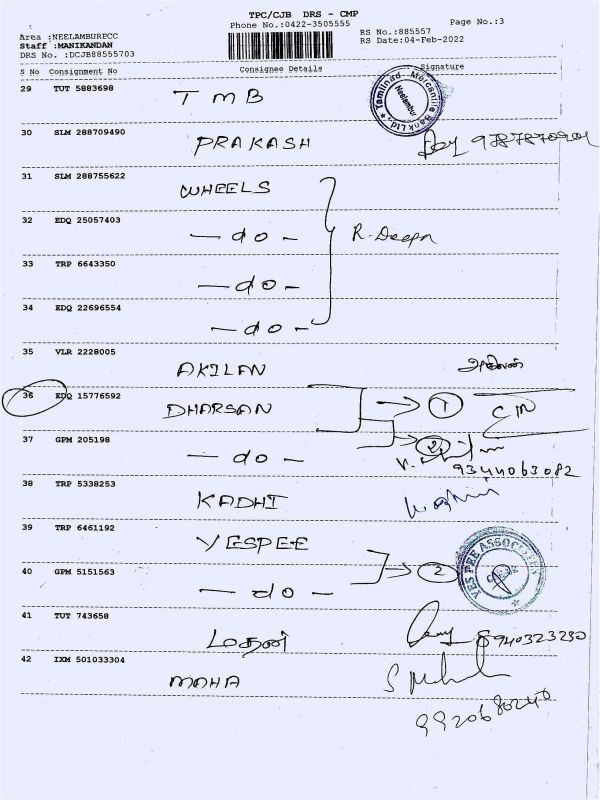 TPC/CJB DRS - CMP
Phone No.:0422-3505555
Page No.:3
Area :NEELAMBURPCC
RS No.:885557
Staff :MANIKANDAN
RS Date:04-Feb-2022
DRS No. :DCJB88555703
S No Consignment No Consignee Details Signature
29 TUT 5883698 TMB
Tamilnad Mercantile Bank Ltd.
Neelambur
30 SLM 288709490 PRAKASH
31 SLM 288755622 WHEELS
32 EDQ 25057403 - do - R. Deepa
33 TRP 6643350 - do -
34 EDQ 22696554 - do -
35 VLR 2228005 AKILAN அகிலன்
36 EDQ 15776592 DHARSAN 1
37 GPM 205198 - do - 2
9344063082
38 TRP 5338253 KADHI
39 TRP 6461192 YESPEE
YES PEE ASSOCIATES
40 GPM 5151563 - do - 2
41 TUT 743658 மதன் 8940323230
42 IXM 501033304 MAHA
9920680240